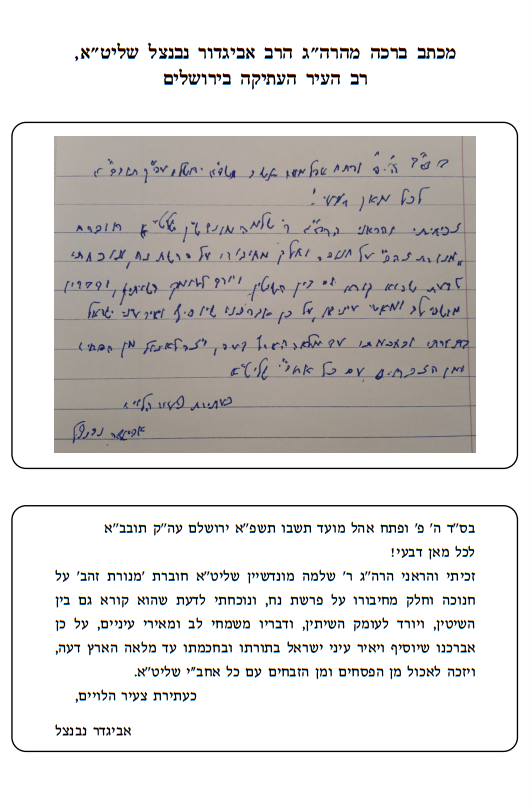 מכתב ברכה מהרה״ג הרב אביגדור נבנצל שליט״א,
רב העיר העתיקה בירושלים
לכל מאן דבעי!
זכיתי והראני הרה״ג ר׳ שלמה מונדשיין שליט״א חוברת
״מנורת זהב״ על חנוכה וחלק מחיבורו על פרשת נח, ונוכחתי
לדעת שהוא קורא גם בין השיטין, ויורד לעומק השיתין, ודבריו
משמחי לב ומאירי עיניים, על כן אברכנו שיוסיף ויאיר עיני ישראל
בתורתו ובחכמתו עד מלאה הארץ דעה, ויזכה לאכול מן הפסחים
ומן הזבחים עם כל אחב״י שליט״א
כעתירת צעיר הלויים
אביגדור נבנצל
בס״ד ה׳ פ׳ ופתח אהל מועד תשבו תשפ״א ירושלם עה״ק תובב״א
לכל מאן דבעי!
זכיתי והראני הרה״ג ר׳ שלמה מונדשיין שליט״א חוברת ׳מנורת זהב׳ על
חנוכה וחלק מחיבורו על פרשת נח, ונוכחתי לדעת שהוא קורא גם בין
השיטין, ויורד לעומק השיתין, ודבריו משמחי לב ומאירי עיניים, על כן
אברכנו שיוסיף ויאיר עיני ישראל בתורתו ובחכמתו עד מלאה הארץ דעה,
ויזכה לאכול מן הפסחים ומן הזבחים עם כל אחב״י שליט״א.
כעתירת צעיר הלויים,
אביגדור נבנצל